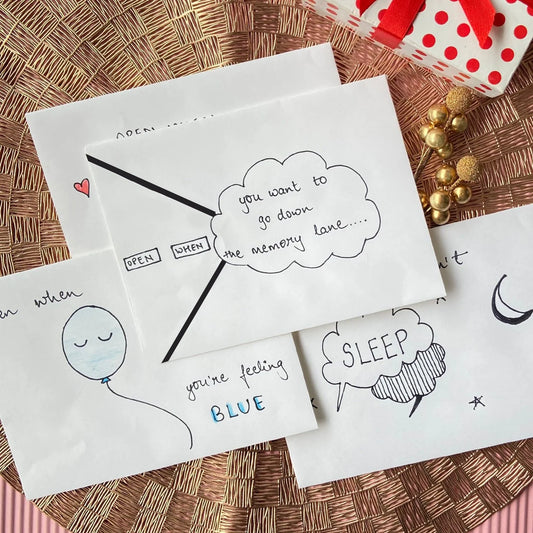 OPEN
OPEN WHEN
you want to
go down
the memory lane....
when
you're feeling
BLUE
SLEEP